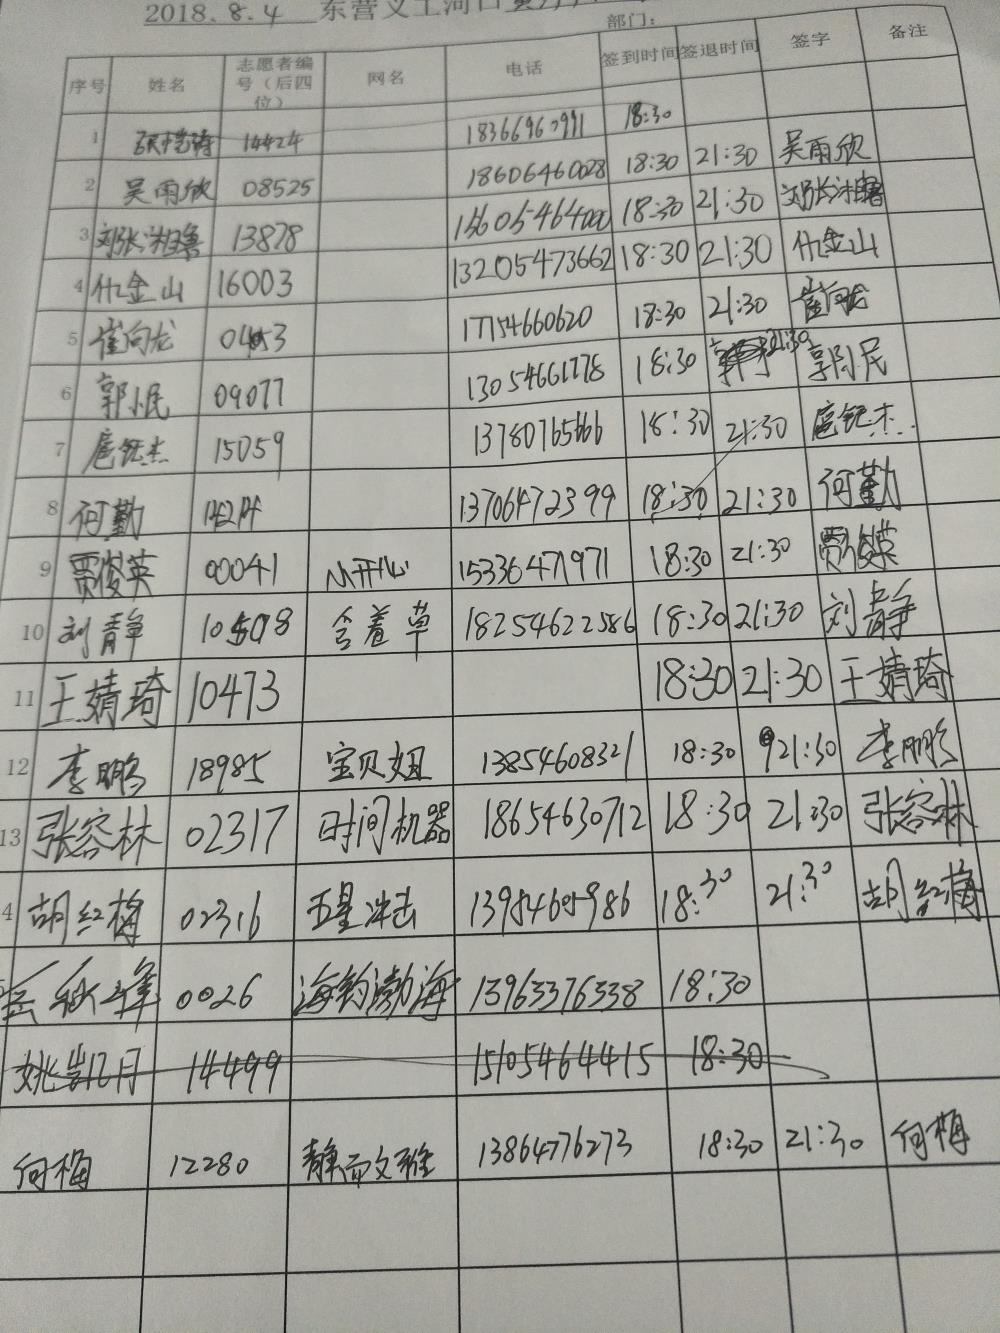 2018.8.4 东营义工河口
部门:
序号 姓名 志愿者编号(后四位) 网名 电话 签到时间 签退时间 签字 备注
1 14424 18366960991 18:30
2 吴雨欣 08525 18606460028 18:30 21:30 吴雨欣
3 13878 18:30 21:30
4 仇金山 16003 13205473662 18:30 21:30 仇金山
5 崔向龙 17154660620 18:30 21:30 崔向龙
6 郭小民 09077 13054661778 18:30 21:30 郭小民
7 扈铌杰 15059 13780765666 18:30 21:30 扈铌杰
8 何勤 14214 13706472399 18:30 21:30 何勤
9 贾俊英 00041 开心 15336471971 18:30 21:30 贾俊英
10 刘静 10508 含羞草 18254622586 18:30 21:30 刘静
11 王婧琦 10473 18:30 21:30 王婧琦
12 李鹏 18985 宝贝妞 13854608321 18:30 21:30 李鹏
13 张容林 02317 时间机器 18654630712 18:30 21:30 张容林
4 胡红梅 02316 五星冲击 13954605986 18:30 21:30 胡红梅
0026 海钓渤海 13963376338 18:30
姚 14499 15105464415 18:30
何梅 12280 静而文雅 13864776273 18:30 21:30 何梅